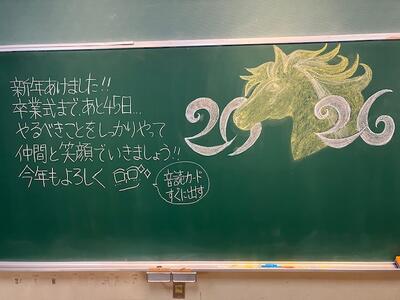 新年あけました!!
卒業式まで、あと45日...
やるべきことをしっかりやって
仲間と笑顔でいきましょう!!
今年もよろしく
音読カード
すぐに出す
2026